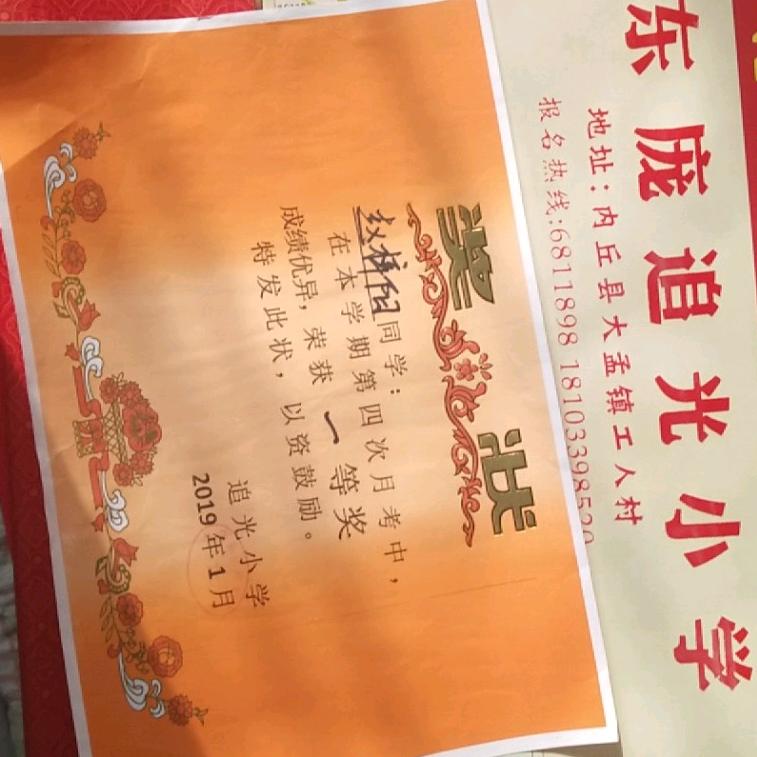 东庞追光小学
地址：内丘县大孟镇工人村
报名热线:6811898 18103398520
奖状
赵梓阳同学：
在本学期第四次月考中，
成绩优异，荣获一等奖
特发此状，以资鼓励。
追光小学
2019年1月